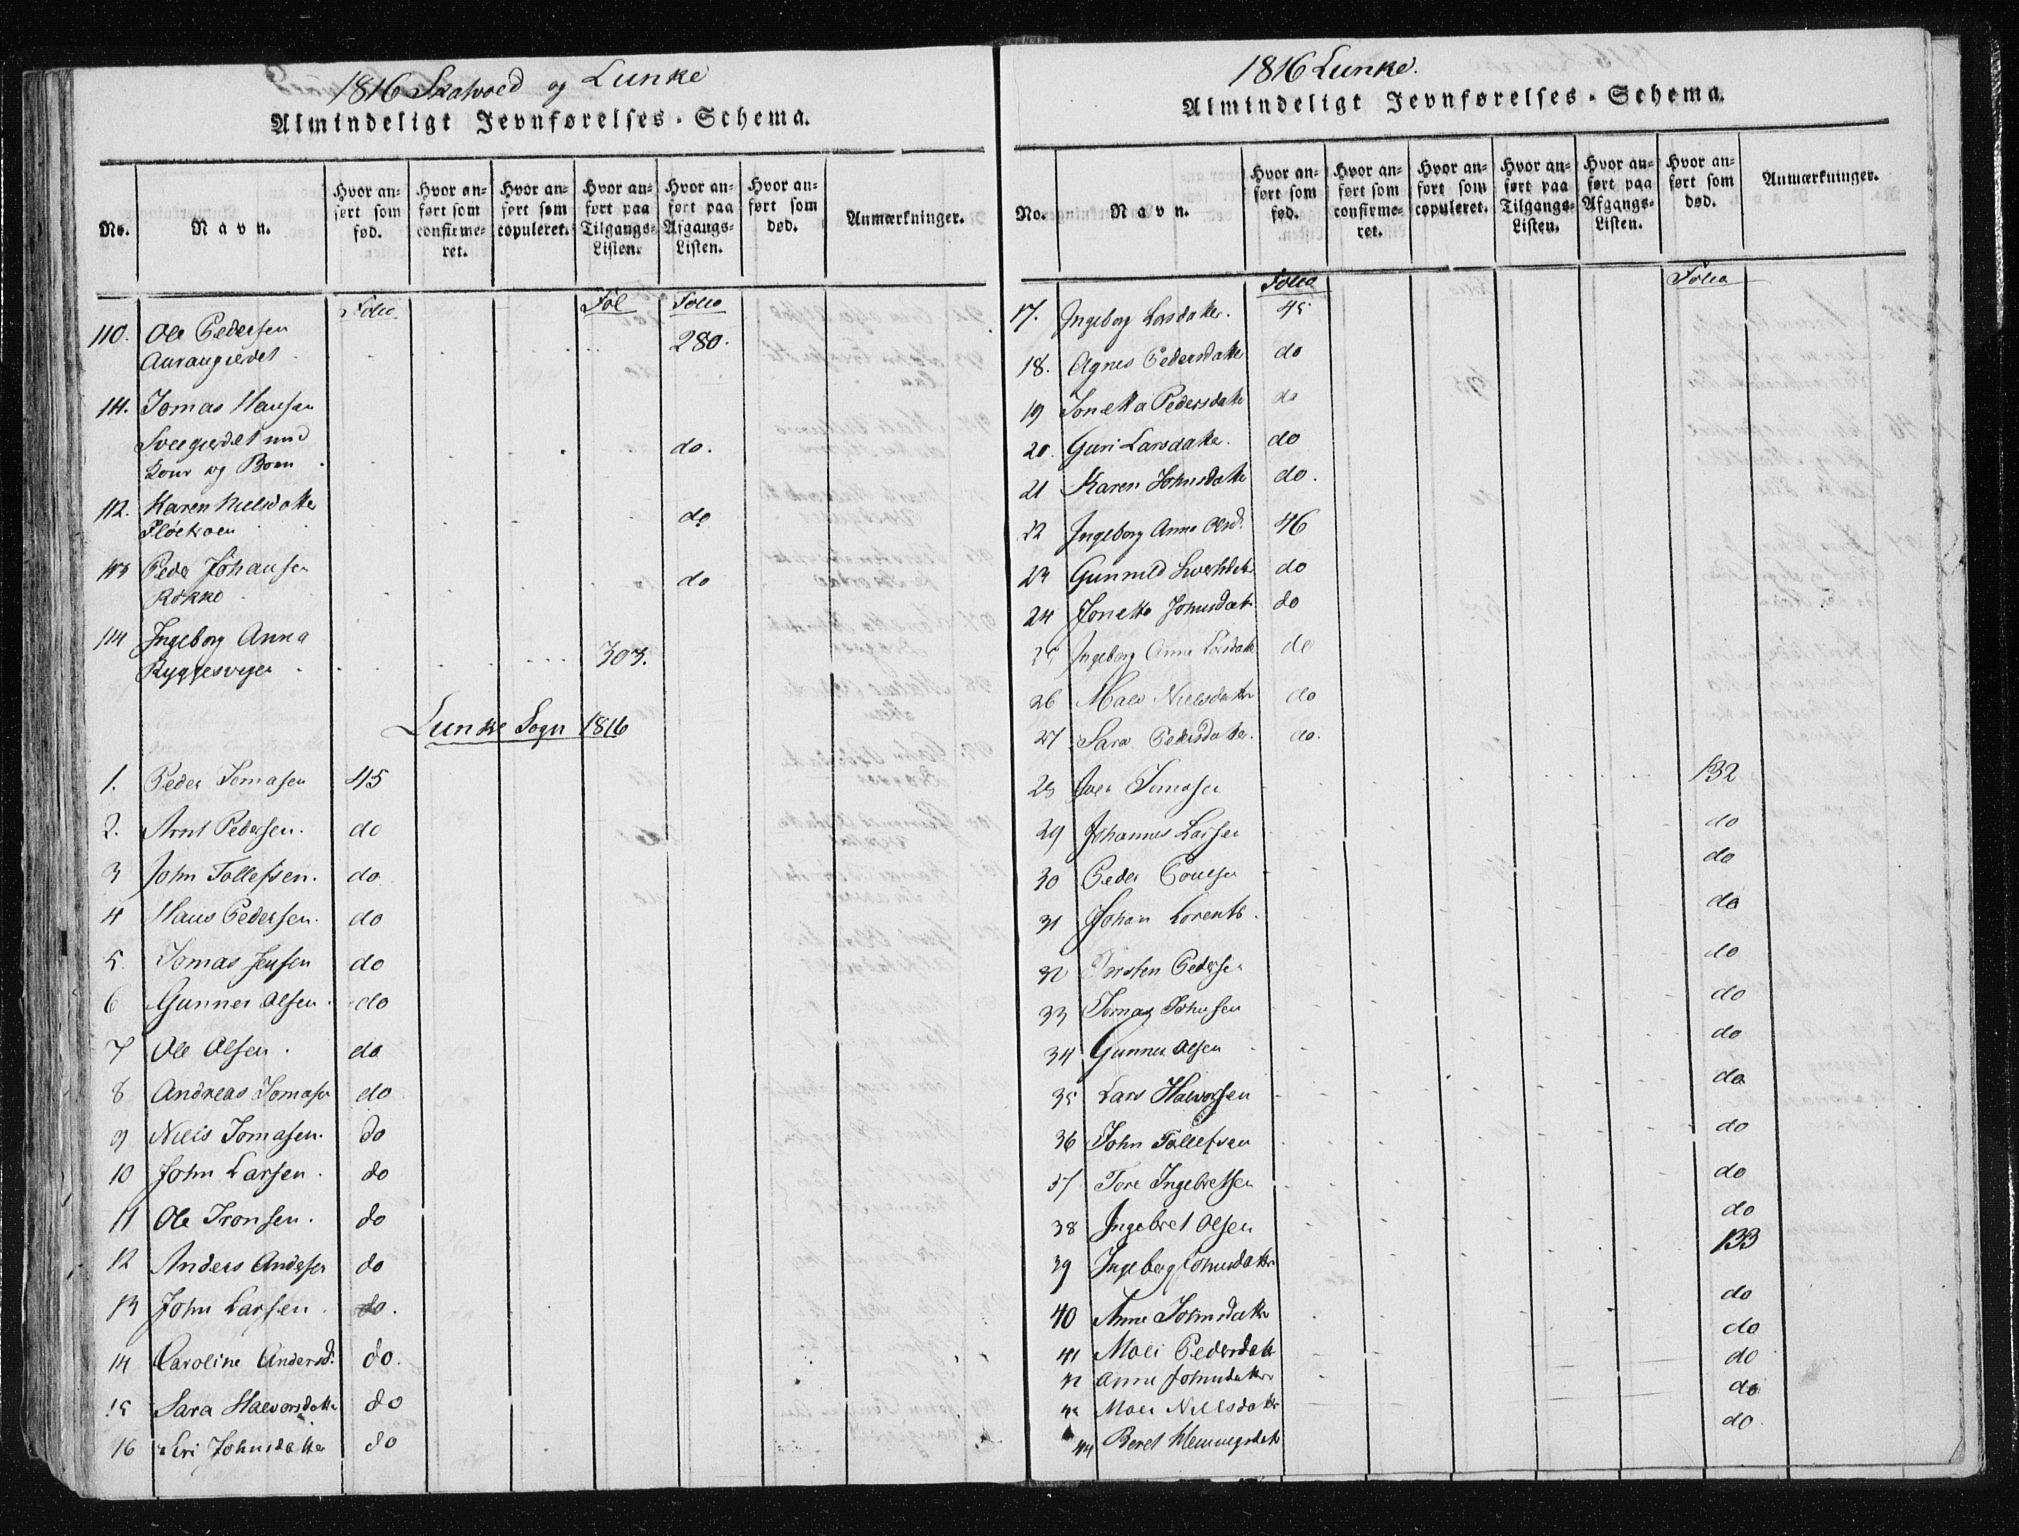 1816 Skatvold og Lunke
Almindeligt Jevnførelses-Schema.
No. Navn. Hvor anført som fød. Hvor anført som confirmeret. Hvor anført som copuleret. Hvor anført paa Tilgangs-Listen. Hvor anført paa Afgangs-Listen. Hvor anført som død. Anmærkninger.
Folio Fol Folio
110. Ole Pedersen
Aurangierdet 280.
111. Tomas Hansen
Sveegierdet med
Kone og Børn do.
112. Karen Nielsdatter
Fløetraen do
113 Peder Johansen
Røkke do
114 Ingeborg Anna
Ryggesvejen 303.
Lunke Sogn 1816
1. Peder Tomasen 45
2. Arnt Pedersen. do
3 John Tollefsen. do
4 Hans Pedersen. do
5 Tomas Jensen do
6 Gunner Olsen. do
7 Ole Olsen. do
8 Andreas Tomasen do
9 Niels Tomasen. do
10 John Larsen. do
11 Ole Tronsen. do
12 Anders Andersen do
13 John Larsen. do.
14 Caroline Andersd. do.
15 Sara Halvorsdatter do
16 Siri Johnsdatter do
1816 Lunke.
Almindeligt Jevnførelses-Schema.
No. Navn. Hvor anført som fød. Hvor anført som confirmeret. Hvor anført som copuleret. Hvor anført paa Tilgangs-Listen. Hvor anført paa Afgangs-Listen. Hvor anført som død. Anmærkninger.
Folio Folio
17. Ingeborg Larsdatter. 45
18. Agnes Pedersdatter do
19 Jonetta Pedersdatter do
20. Guri Larsdatter. do
21 Karen Johnsdatter do.
22 Ingeborg Anna Olsd. 46
23 Gunnild do
24 Jonetta Johnsdatr do
25 Ingeborg Anna Larsdatter do
26 Mali Nielsdatter do
27 Sara Pedersdatter. do.
28 Iver Tomasen 132
29 Johannes Larsen do
30 Peder Poulsen do
31 Johan Lorents. do
32 Torsten Pedersen do
33 Tomas Johnsen do
34 Gunner Olsen do
35 Lars Halvorsen do
36 John Tollefsen do
37 Tore Ingebretsen do
38 Ingebret Olsen do
39 Ingeborg Johnsdatter 133
40 Anne Johnsdatter do
41 Mali Pedersdatr do
42 Anne Johnsdatter do
43 Mali Nielsdatr do
44 Beret Hemingsdatr do